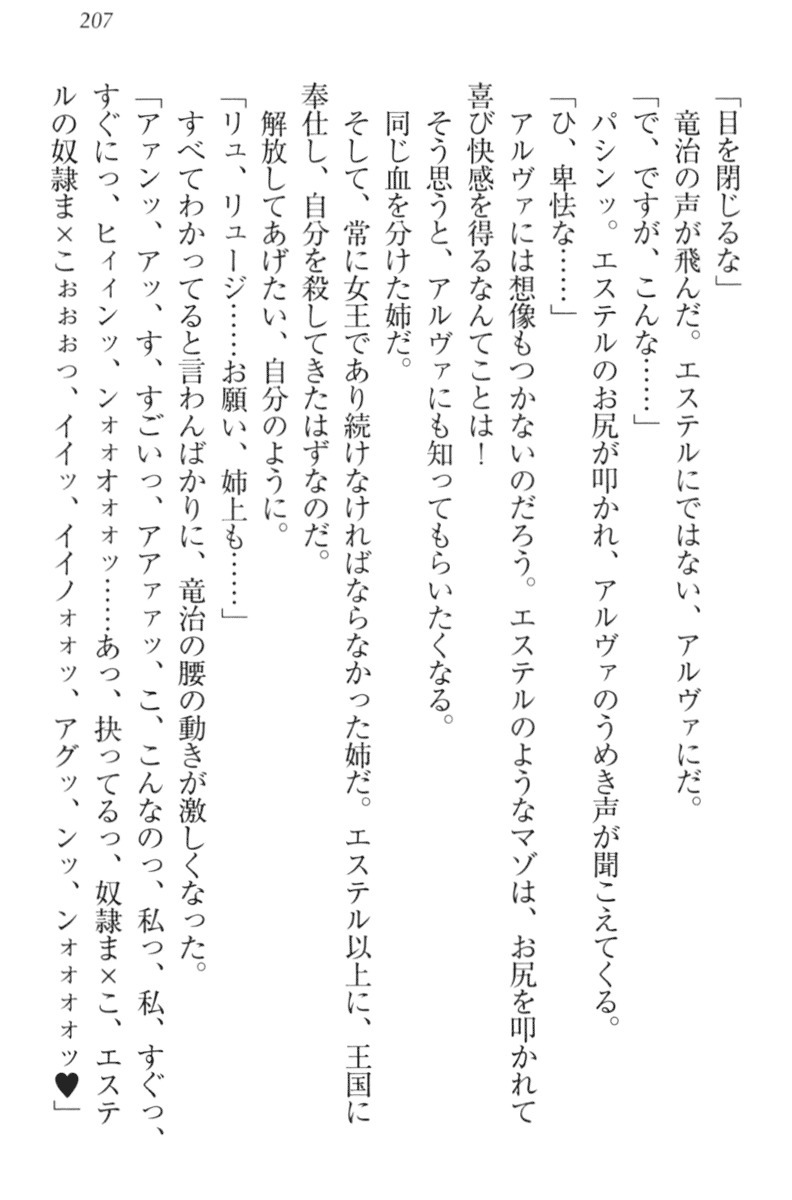 207
「目を閉じるな」
　竜治の声が飛んだ。エステルにではない、アルヴァにだ。
「で、ですが、こんな……」
　パシンッ。エステルのお尻が叩かれ、アルヴァのうめき声が聞こえてくる。
「ひ、卑怯な……」
　アルヴァには想像もつかないのだろう。エステルのようなマゾは、お尻を叩かれて
喜び快感を得るなんてことは！
　そう思うと、アルヴァにも知ってもらいたくなる。
　同じ血を分けた姉だ。
　そして、常に女王であり続けなければならなかった姉だ。エステル以上に、王国に
奉仕し、自分を殺してきたはずなのだ。
　解放してあげたい、自分のように。
「リュ、リュージ……お願い、姉上も……」
　すべてわかってると言わんばかりに、竜治の腰の動きが激しくなった。
「アァンッ、アッ、す、すごいっ、アアァァッ、こ、こんなのっ、私っ、私、すぐっ、
すぐにっ、ヒィィンッ、ンォォオォォッ……あっ、抉ってるっ、奴隷ま×こ、エステ
ルの奴隷ま×こぉぉぉっ、イイッ、イイノォォッ、アグッ、ンッ、ンォォォォッ♥」